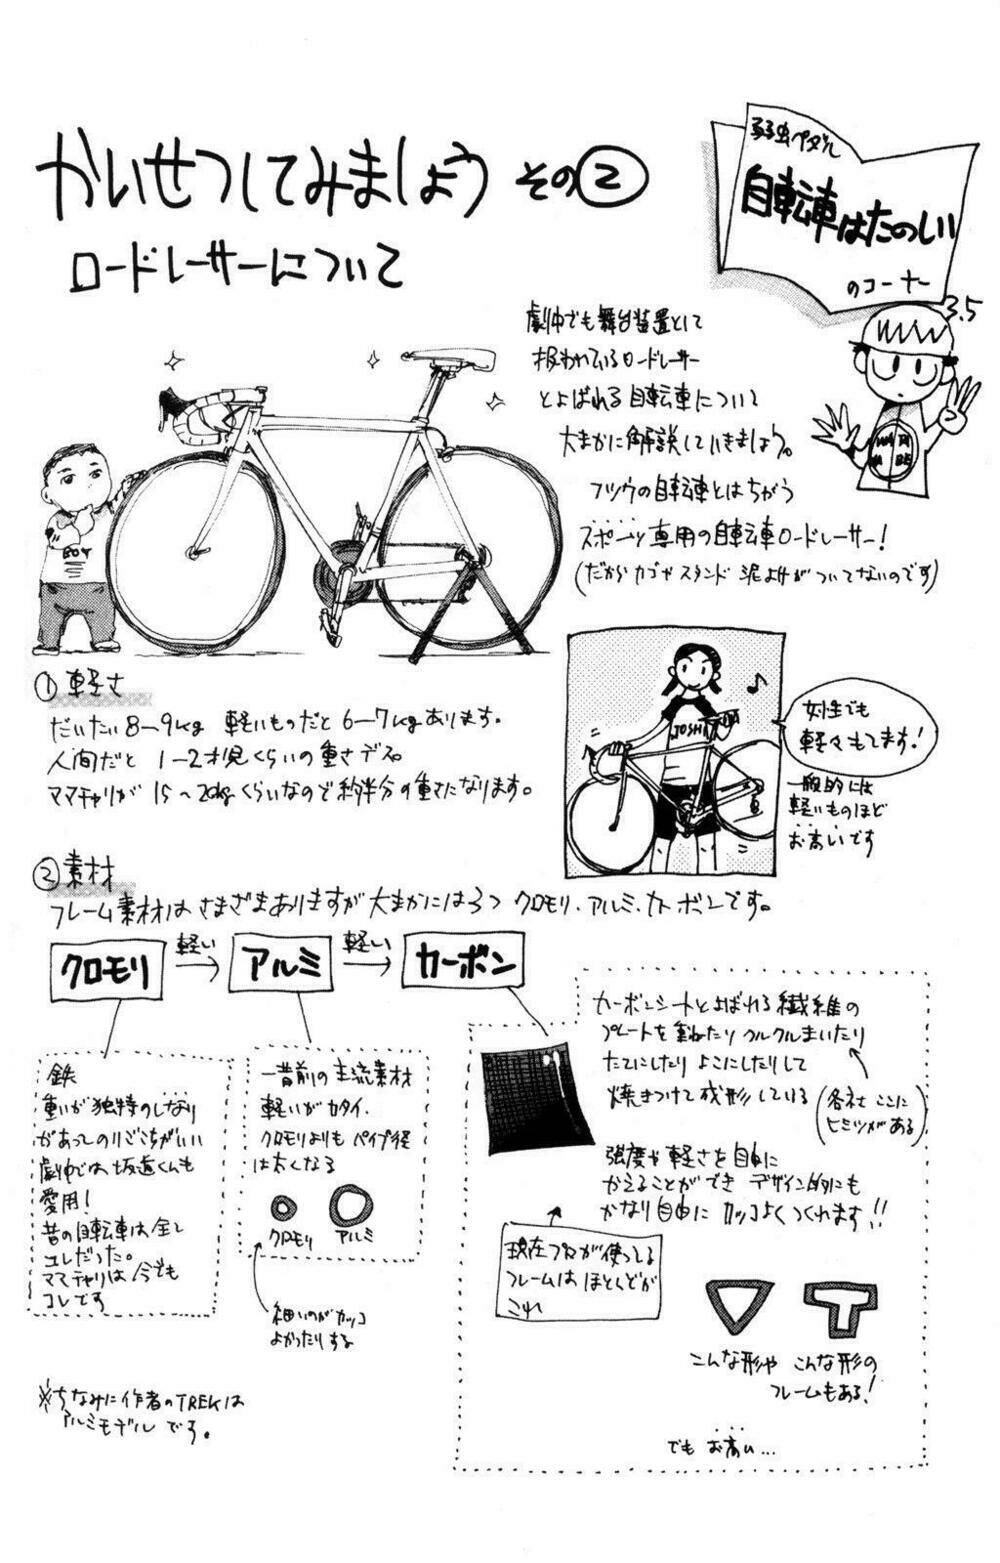 かいせつしてみましょう その②
ロードレーサーについて
弱虫ペダル
自転車はたのしい
のコーナー
3.5
劇中でも舞台装置として
扱われているロードレーサー
とよばれる自転車について
大まかに解説していきましょう。
フツウの自転車とはちがう
スポーツ専用の自転車ロードレーサー!
(だからカゴやスタンド 泥よけがついてないのです)
BOY
①軽さ
だいたい8―9kg 軽いものだと6―7kgあります。
人間だと 1―2才児くらいの重さデス。
ママチャリが 15～20kgくらいなので約半分の重さになります。
JOSHI
女性でも
軽々もてます!
一般的には
軽いものほど
お高いです
②素材
フレーム素材はさまざまありますが大まかには3つ クロモリ、アルミ、カーボンです。
クロモリ 軽い→ アルミ 軽い→ カーボン
鉄
重いが独特のしなり
があってのりごこちがいい
劇中では坂道くんも
愛用!
昔の自転車は全て
コレだった。
ママチャリは今でも
コレです
一昔前の主流素材
軽いがカタイ、
クロモリよりもパイプ径
は太くなる
クロモリ アルミ
細いのがカッコ
よかったりする
カーボンシートとよばれる繊維の
プレートを重ねたりクルクルまいたり
たてにしたりよこにしたりして
焼きつけて成形している
(各社ここに
ヒミツがある)
強度や軽さを自由に
かえることができ デザイン的にも
かなり自由に カッコよくつくれます!!
現在プロが使ってる
フレームはほとんどが
これ
こんな形や こんな形の
フレームもある!
でも お高い…
※ちなみに作者のTREKは
アルミモデルです。